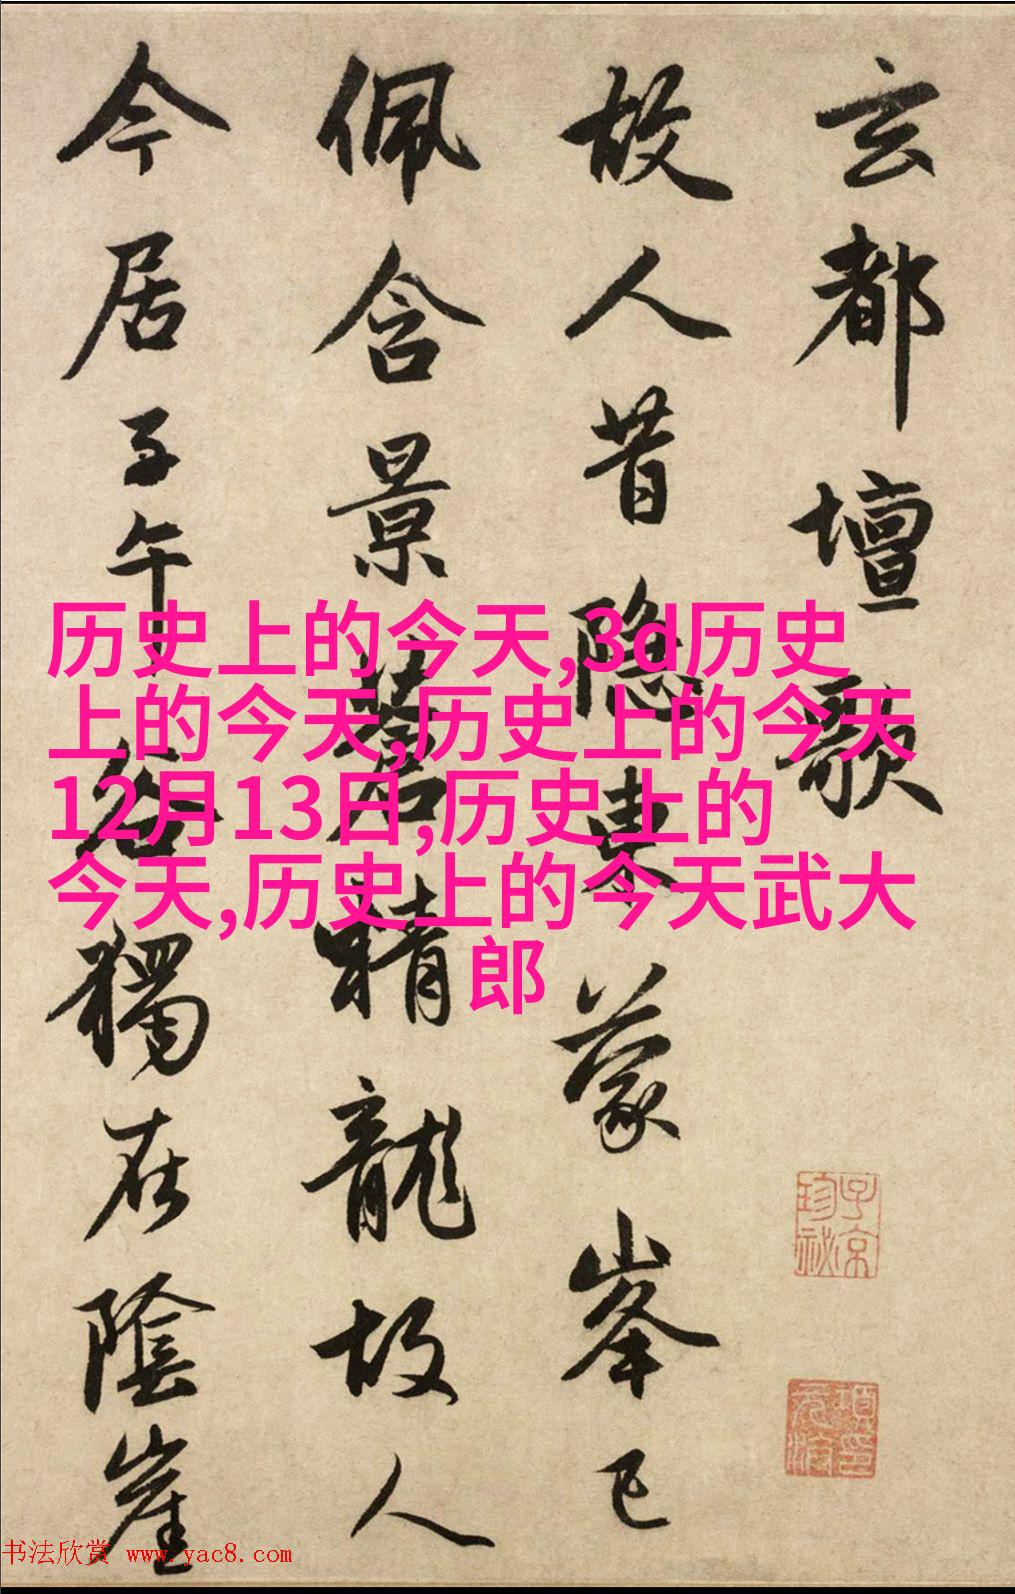 玄都壇歌
故人昔隐東蒙峯已
佩含景蒼精龍故人
今居子午谷獨在陰崖
历史上的今天,3d历史
上的今天,历史上的今天
12月13日,历史上的
今天,历史上的今天武大
郎
子京
珍秘
项元汴印
书法欣赏 www.yac8.com